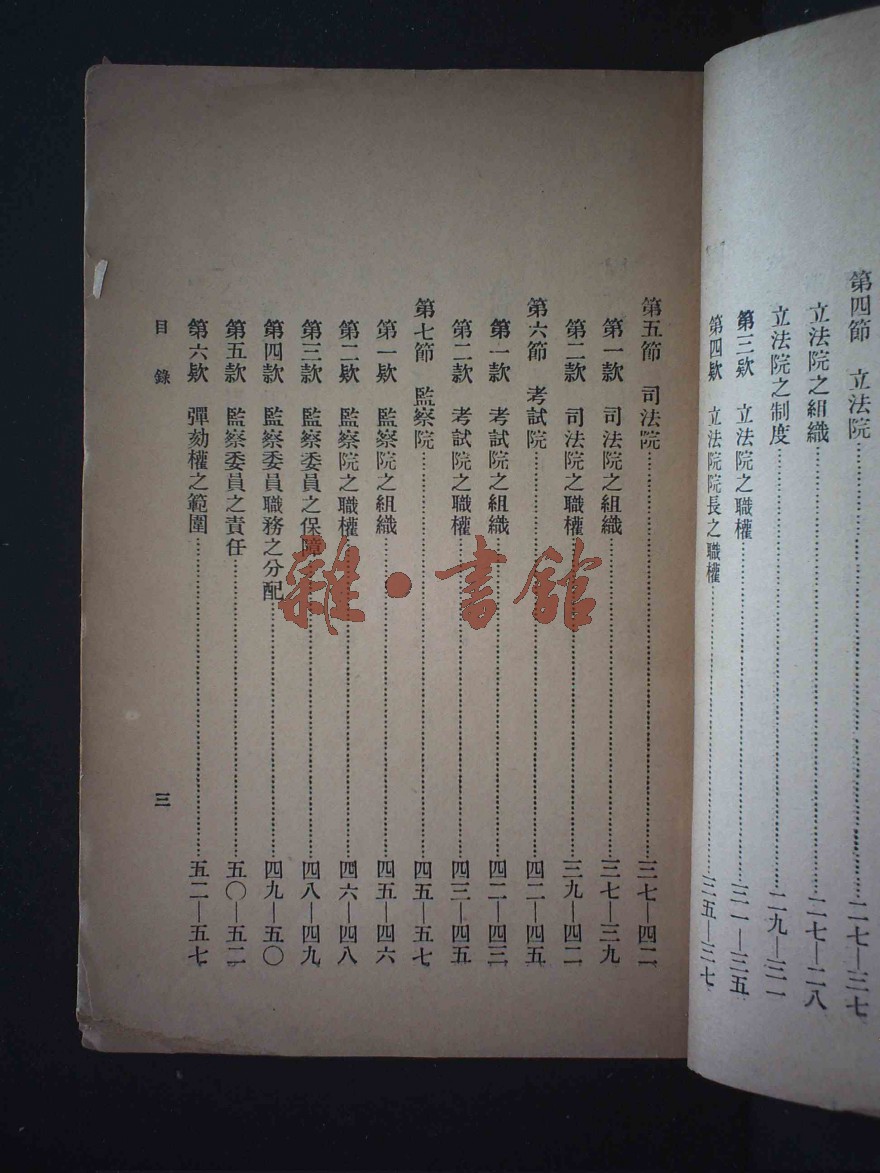 第四節　立法院……二七—三七
立法院之組織……二七—二八
立法院之制度……二九—三一
第三欵　立法院之職權……三一—三五
第四欵　立法院院長之職權……三五—三七
第五節　司法院……三七—四二
第一款　司法院之組織……三七—三九
第二款　司法院之職權……三九—四二
第六節　考試院……四二—四五
第一款　考試院之組織……四二—四三
第二款　考試院之職權……四三—四五
第七節　監察院……四五—五七
第一欵　監察院之組織……四五—四六
第二欵　監察院之職權……四六—四八
第三款　監察委員之保障……四八—四九
第四款　監察委員職務之分配……四九—五〇
第五款　監察委員之責任……五〇—五二
第六欵　彈劾權之範圍……五二—五七
目錄
三
雜·書館